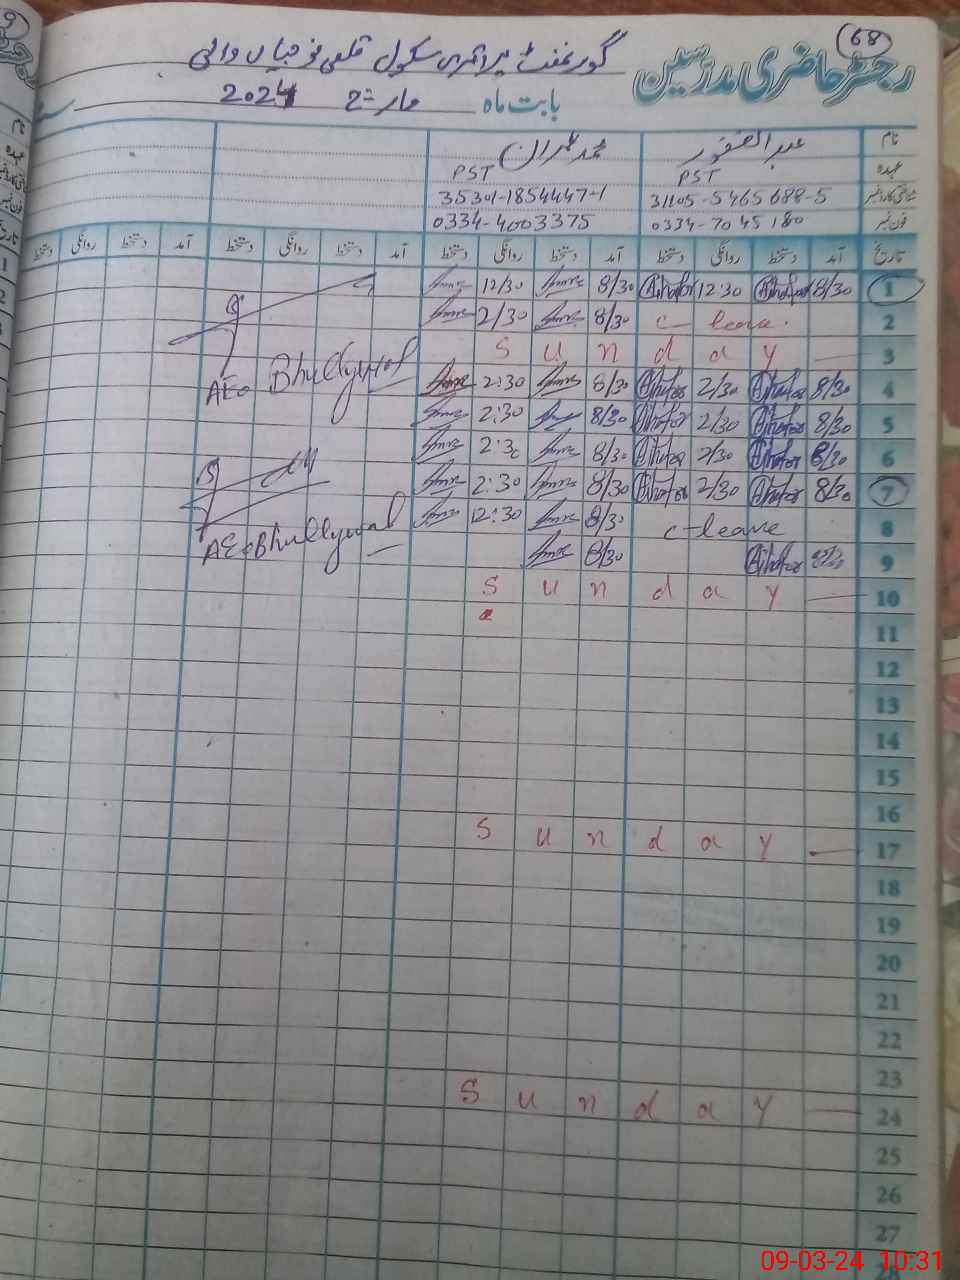 68
رجسٹر حاضری مدرسین
گورنمنٹ پرائمری سکول قلعی فوجیاں والی
بابت ماہ مارچ 2024
نام عبدالغفور محمد عمران
عہدہ PST PST
شناختی کارڈ نمبر 31105-5465688-5 35301-1854447-1
فون نمبر 0334-7045180 0334-4003375
تاریخ آمد دستخط روانگی دستخط آمد دستخط روانگی دستخط آمد دستخط روانگی دستخط آمد دستخط روانگی دستخط
1 8/30 12:30 8/30 12/30
2 c-leave. 8/30 2/30
3 Sunday
4 8/30 2/30 8/30 2:30
AEo Bhullywal
5 8/30 2/30 8/30 2:30
6 8/30 2/30 8/30 2:30
7 8/30 2/30 8/30 2:30
8 c-leave 8/30 12:30
AEo Bhullywal
9 8/30 8/30
10 Sunday
11
12
13
14
15
16
17 Sunday
18
19
20
21
22
23
24 Sunday
25
26
27
09-03-24 10:31